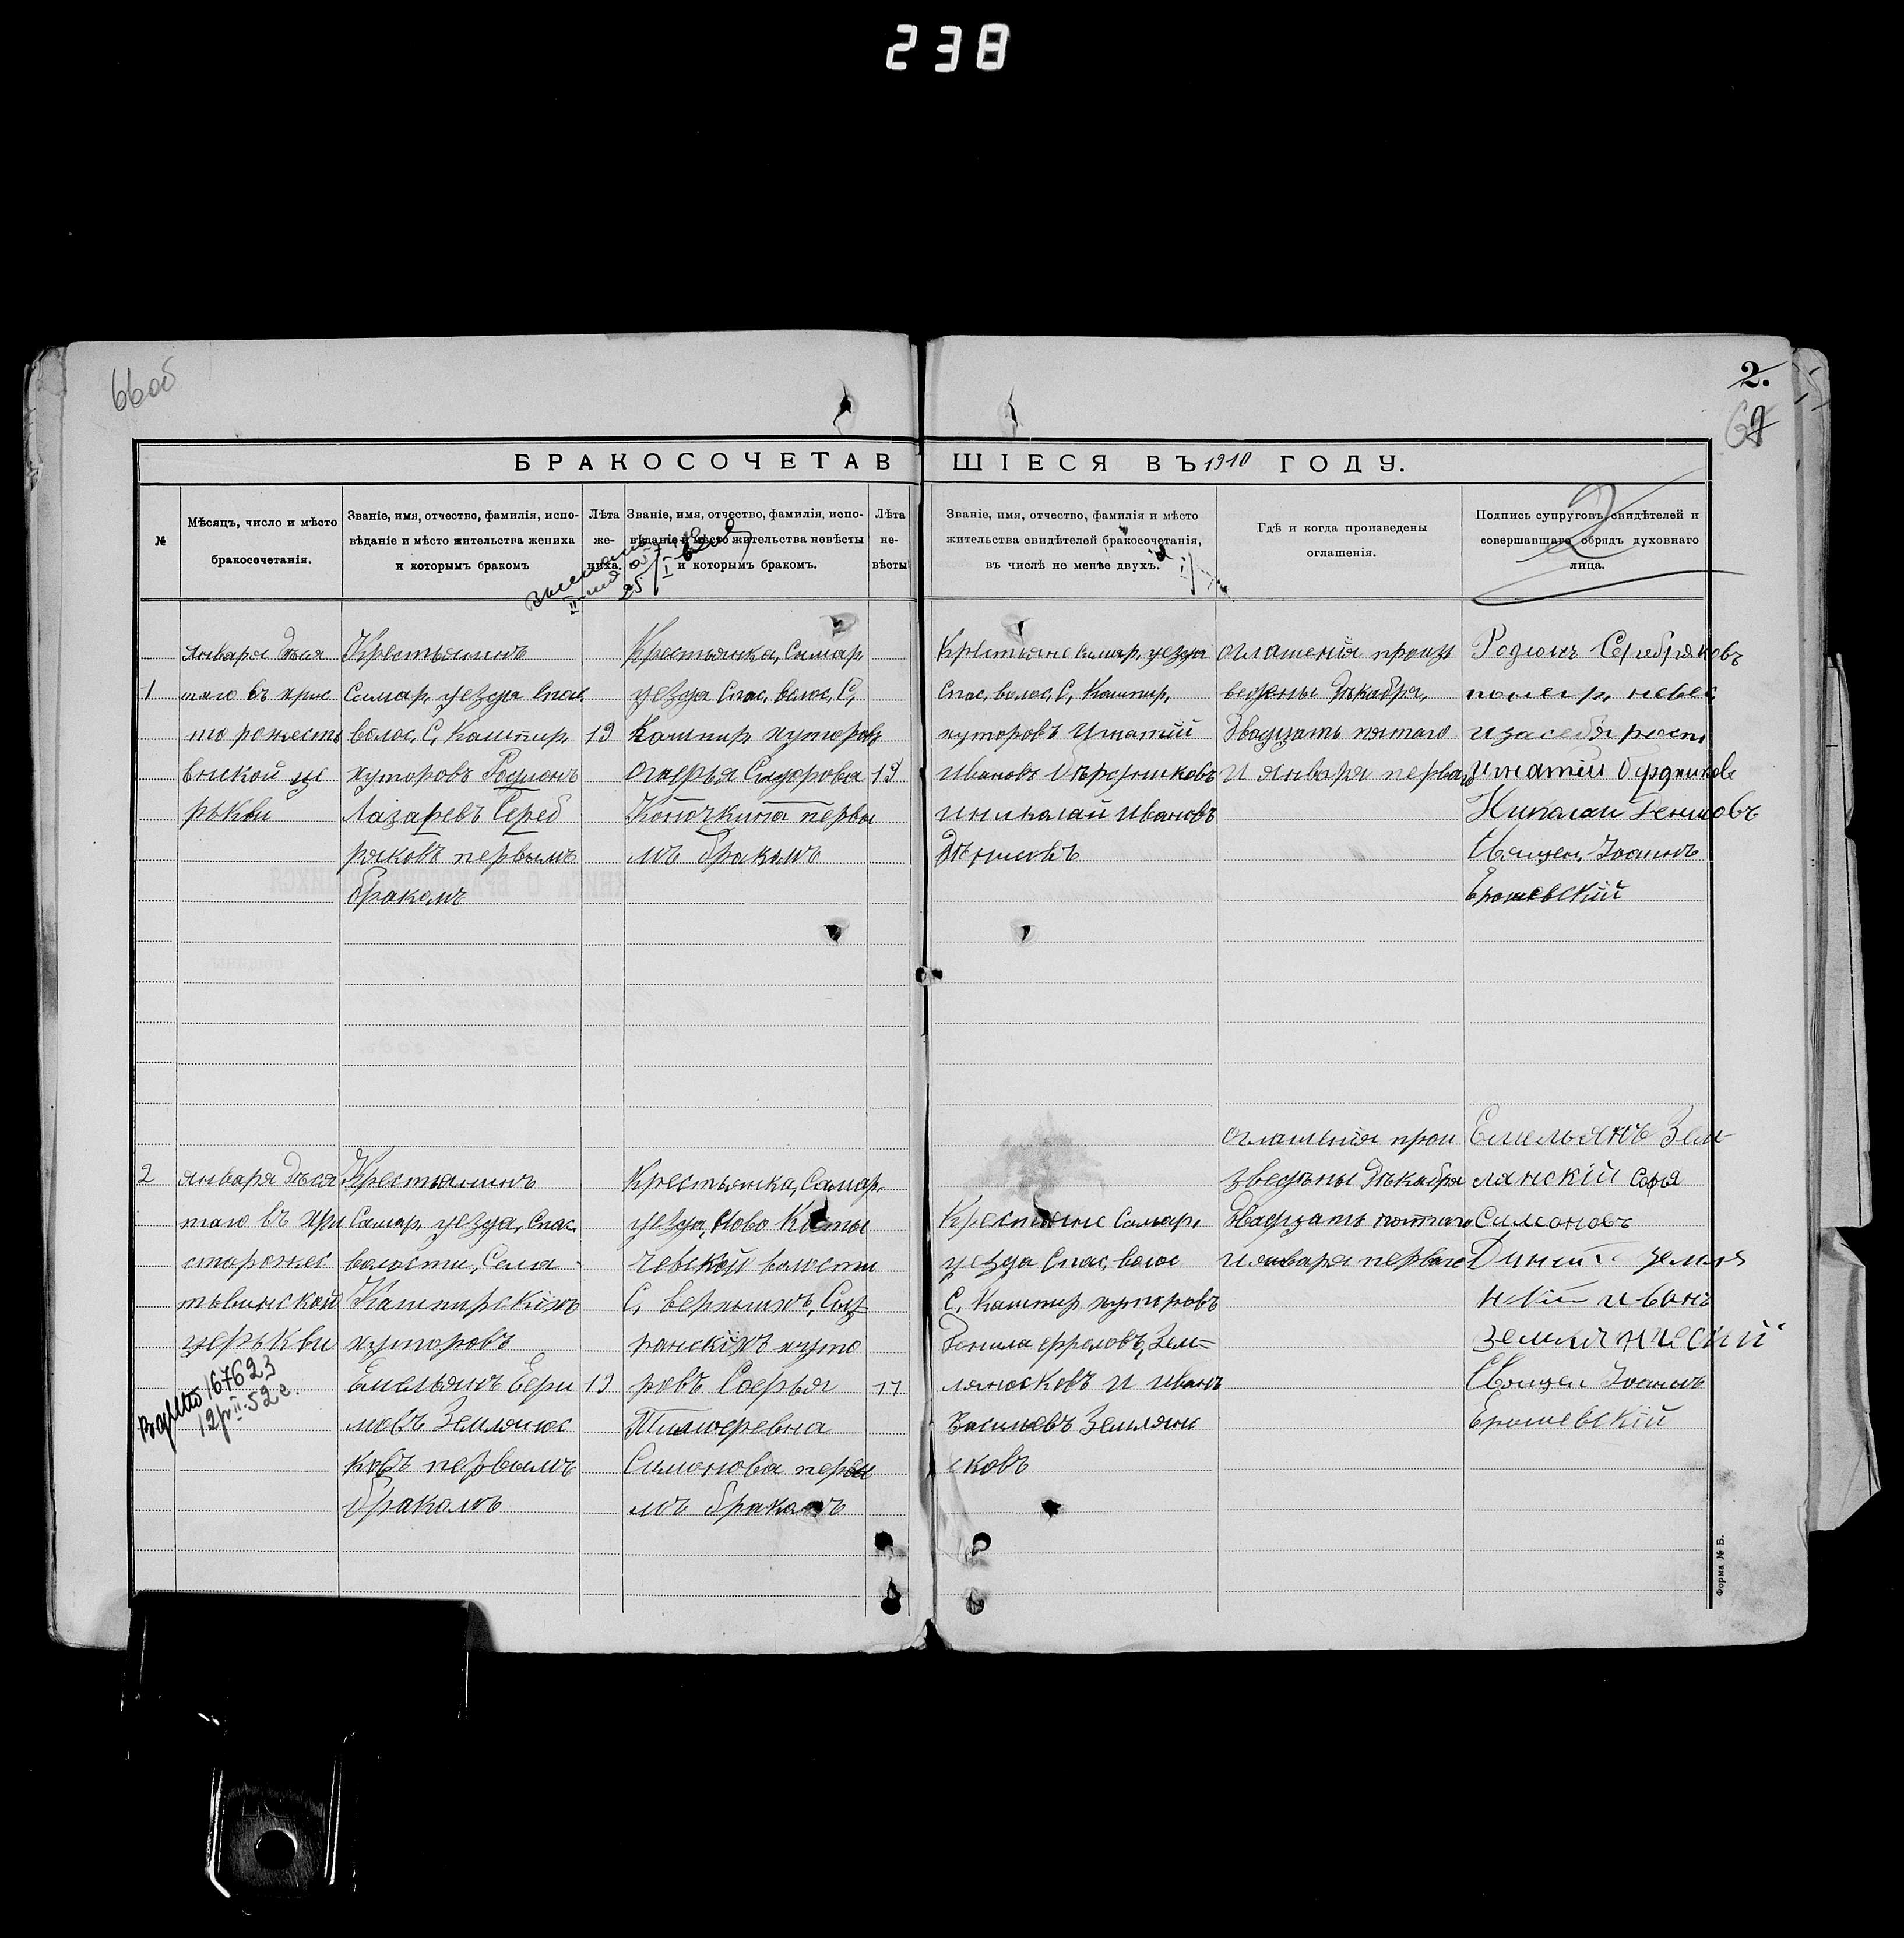 238
66об
2.
БРАКОСОЧЕТАВШІЕСЯ ВЪ 1910 ГОДУ.
№
Мѣсяцъ, число и мѣсто
бракосочетанія.
Званіе, имя, отчество, фамилія, испо-
вѣданіе и мѣсто жительства жениха
и которымъ бракомъ
Лѣта
же-
ниха.
Званіе, имя, отчество, фамилія, испо-
вѣданіе и мѣсто жительства невѣсты
и которымъ бракомъ.
Лѣта
не-
вѣсты
Званіе, имя, отчество, фамилія и мѣсто
жительства свидѣтелей бракосочетанія,
въ числѣ не менѣе двухъ.
Гдѣ и когда произведены
оглашенія.
Подпись супруговъ, свидѣтелей и
совершавшаго обрядъ духовнаго
лица.
2
1
января деся
таго въ хрис
то рожеств
енской це
рькви
Крестьянинъ
Самар, уезда Спас,
волос, С, Кашпир,
хуторовъ Родионъ
Лазаревъ Сереб
ряковъ первымъ
бракомъ
19
Крестьянка, Самар,
уезда Спас, волос, С,
Кашпир, хуторовъ
Сидорова
Коночкина первы
мъ бракомъ
19
Крестьяне самар, уезда
Спас, волос, С, Кашпир,
хуторовъ Игнатий
Ивановъ
и николай ивановъ
Денисовъ
оглашения произ
ведены декабря,
двадцать пятаго
и января перваго
Родионъ Серебряковъ
и за себя роспи
Игнатий
Николаи Денисовъ
Священ, Иоаннъ
Ерошевский
2
января деся
таго въ хри
сторожес
твинской
церькви
167623
12/II 52 г.
Крестьянинъ
Самар, уезда, Спас,
волости, Села
Кашпирскихъ
хуторовъ
Емельянъ Ефи
мовъ Землянос
ковъ первымъ
бракомъ
19
Крестьянка, Самар,
уезда, Ново Косты
чевской волости
С,
ранскихъ хуто
ровъ Софья
Тимофеевна
Симонова первы
мъ бракомъ
17
Крестьяне Самар,
уезда Спас, волос
С, Кашпир хуторовъ
Данила Фроловъ, Зем-
лянсковъ и иванъ
Васильевъ Землян
сковъ
оглашения прои
зведены декабря
двадцать пятаго
и января перваго
Емельянъ Зем-
лянский Софя
Симоновъ
земля
нский иванъ
Священ Иоаннъ
Ерошевский
Форма № Б.